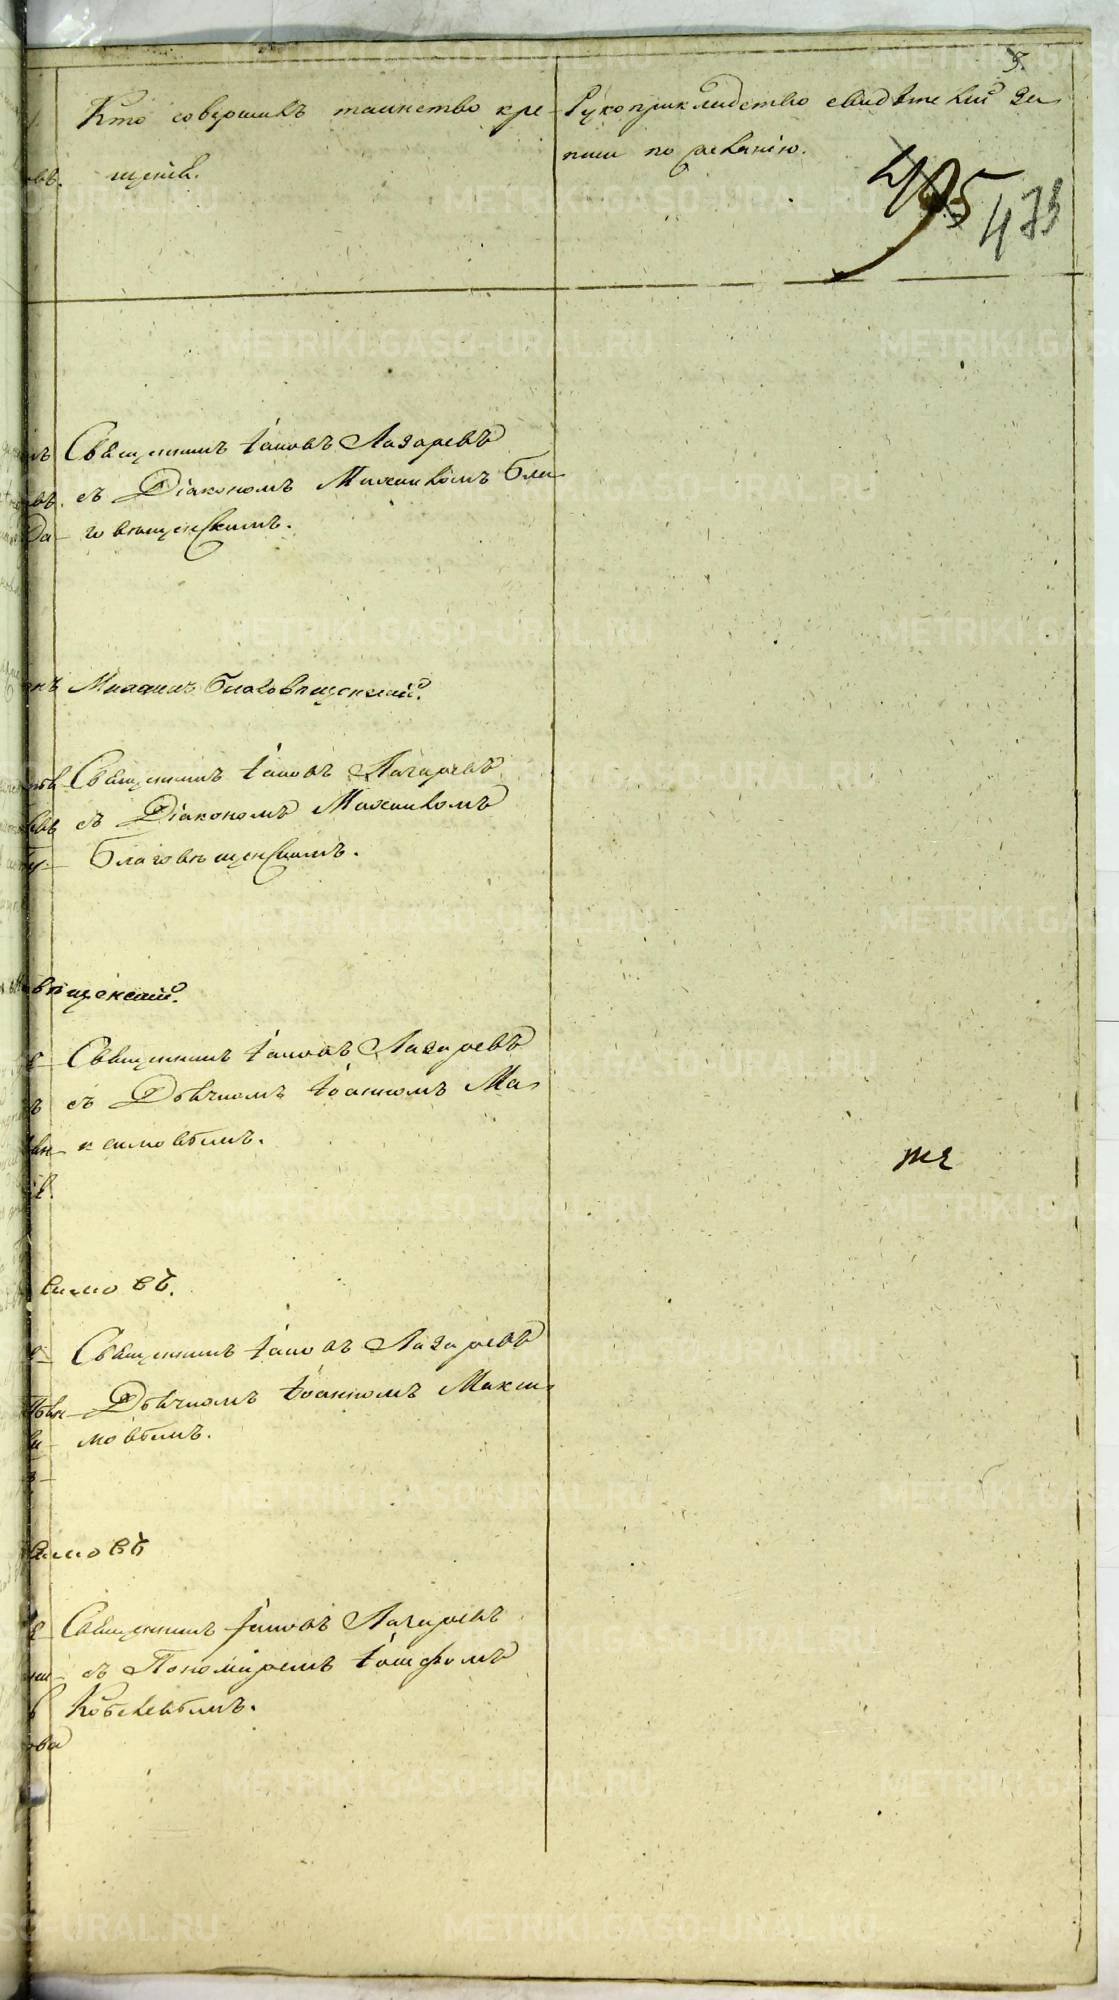 5.
Кто совершилъ таинство кре-
щенія.
Рукоприкладство свидѣтелей за-
писи по желанію.
495
473
Священникъ Іаковъ Лазаревъ
съ Діакономъ Михаиломъ Бла-
говѣщенскимъ.
Михаилъ Благовѣщенскій.
Священникъ Іаковъ Лазаревъ
съ Діакономъ Михаиломъ
Благовѣщенскимъ.
вѣщенскій.
Священникъ Іаковъ Лазаревъ
съ Дьячкомъ Іоанномъ Ма-
ксимовымъ.
симовъ.
Священникъ Іаковъ Лазаревъ
Дьячкомъ Іоанномъ Макси-
мовымъ.
симовъ
Священникъ Іаковъ Лазаревъ
съ Пономаремъ Іосифомъ
Кобелевымъ.
METRIKI.GASO-URAL.RU